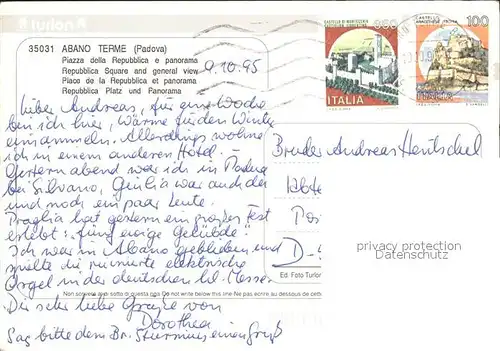 turlon
35031 ABANO TERME (Padova)
Piazza della Repubblica e panorama
Repubblica Square and general view
Place de la Repubblica et panorama
Repubblica Platz und Panorama
9.10.95
CASTELLO DI MONTECCHIO
CASTIGLION FIORENTINO
350
ITALIA
CASTELLO
100
Lieber Andreas, für eine Woche
bin ich hier, Wärme für den Winter
einsammeln. Allerdings wohne
ich in einem anderen Hotel. -
Gestern abend war ich in Padua
bei Silvano, Giulia war auch da
und noch ein paar Leute.
Praglia hat gestern ein großes Fest
erlebt: "fünf ewige Gelübde"
Ich war in Abano geblieben und
spielte die elektrische
Orgel in der deutschen hl. Messe.
Non scrivere al di sotto di questa riga Do not write below this line Ne pas écrire au dessous de cette
Dir sehr liebe Grüße von
Dorothea
Sag bitte dem Br. Sturmius einen Gruß
Bruder Andreas Hentschel
D-
Ed. Foto Turlon
privacy protection
Datenschutz